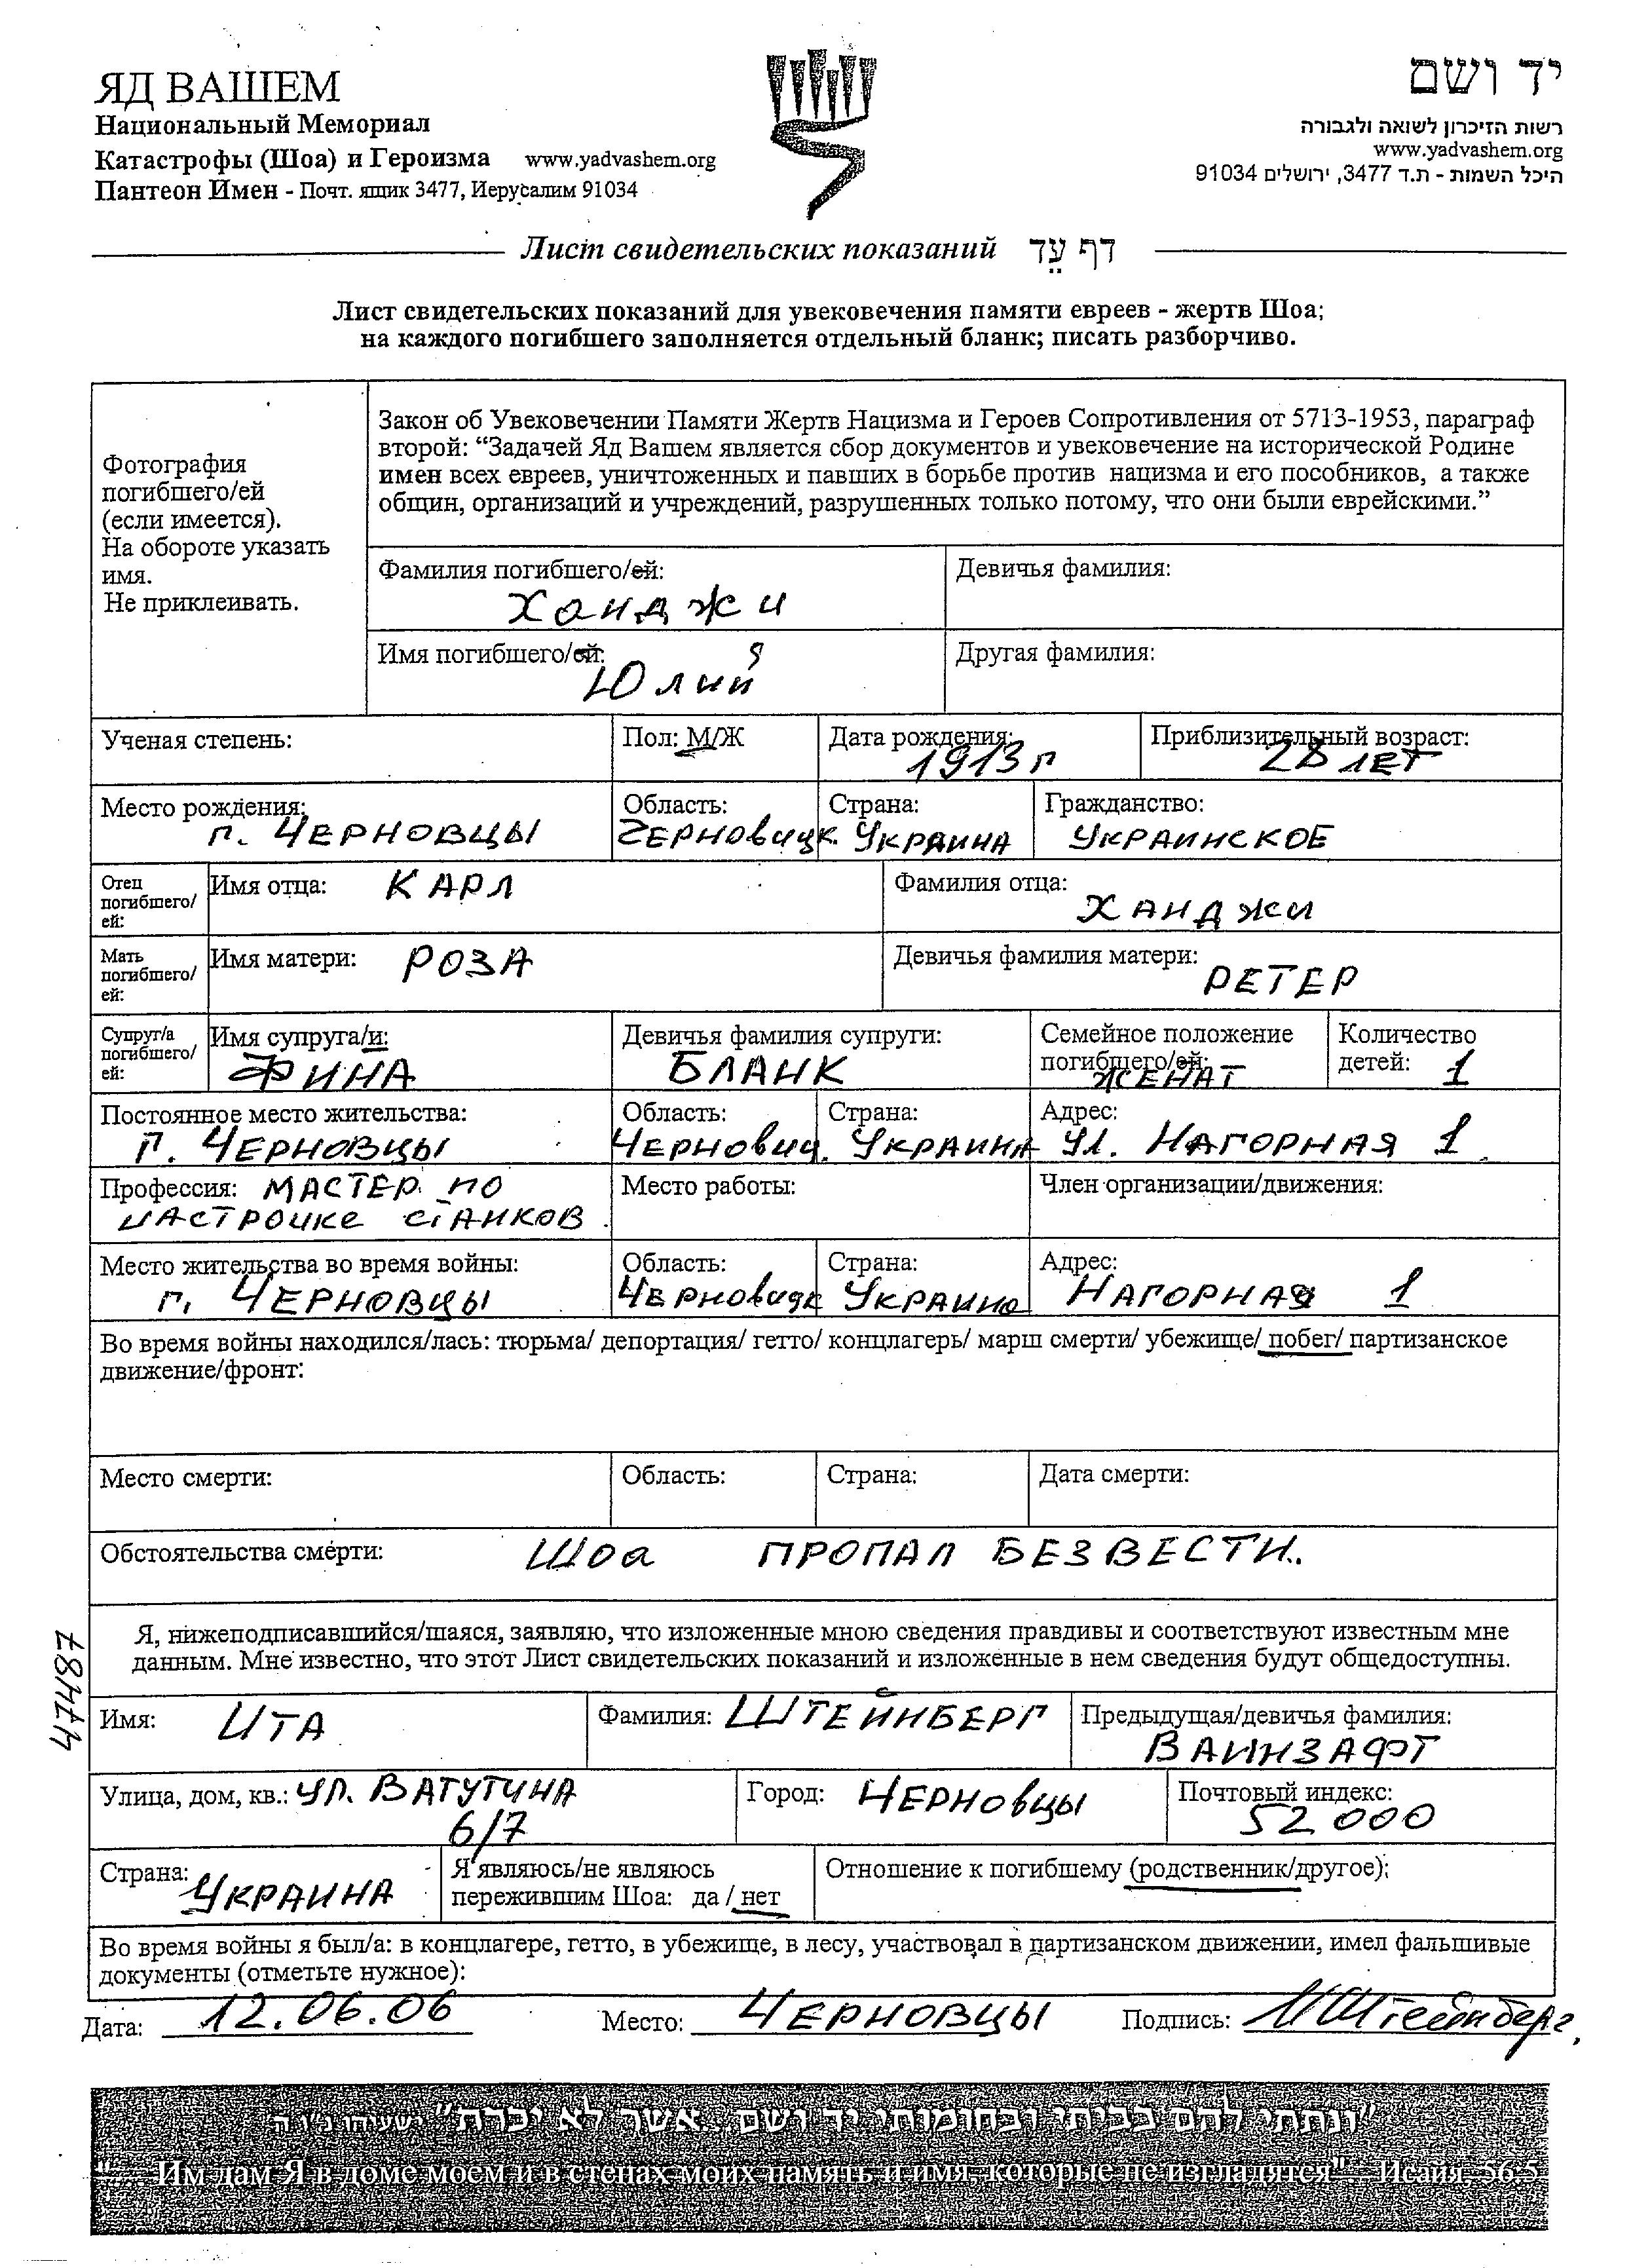 ЯД ВАШЕМ
Национальный Мемориал
Катастрофы (Шоа) и Героизма www.yadvashem.org
Пантеон Имен - Почт. ящик 3477, Иерусалим 91034
יד ושם
רשות הזיכרון לשואה ולגבורה
www.yadvashem.org
היכל השמות - ת.ד 3477, ירושלים 91034
Лист свидетельских показаний דף עֵד
Лист свидетельских показаний для увековечения памяти евреев - жертв Шоа;
на каждого погибшего заполняется отдельный бланк; писать разборчиво.
Фотография
погибшего/ей
(если имеется).
На обороте указать
имя.
Не приклеивать.
Закон об Увековечении Памяти Жертв Нацизма и Героев Сопротивления от 5713-1953, параграф
второй: “Задачей Яд Вашем является сбор документов и увековечение на исторической Родине
имен всех евреев, уничтоженных и павших в борьбе против нацизма и его пособников, а также
общин, организаций и учреждений, разрушенных только потому, что они были еврейскими.”
Фамилия погибшего/ей: Девичья фамилия:
Ханджи
Имя погибшего/ей: Другая фамилия:
Юлий
Ученая степень: Пол: М/Ж Дата рождения: Приблизительный возраст:
1913 г 28 ЛЕТ
Место рождения: Область: Страна: Гражданство:
г. ЧЕРНОВЦЫ ЧЕРНОВИЦК. УКРАИНА УКРАИНСКОЕ
Отец
погибшего/
ей:
Имя отца: КАРЛ Фамилия отца:
ХАНДЖИ
Мать
погибшего/
ей:
Имя матери: РОЗА Девичья фамилия матери:
РЕТЕР
Супруг/а
погибшего/
ей:
Имя супруга/и: Девичья фамилия супруги: Семейное положение
погибшего/ей: Количество
детей: 1
ФИНА БЛАНК ЖЕНАТ
Постоянное место жительства: Область: Страна: Адрес:
Г. ЧЕРНОВЦЫ ЧЕРНОВИЦ. УКРАИНА УЛ. НАГОРНАЯ 1
Профессия: МАСТЕР ПО Место работы: Член организации/движения:
НАСТРОЙКЕ СТАНКОВ
Место жительства во время войны: Область: Страна: Адрес:
г. ЧЕРНОВЦЫ ЧЕРНОВИЦК УКРАИНА НАГОРНАЯ 1
Во время войны находился/лась: тюрьма/ депортация/ гетто/ концлагерь/ марш смерти/ убежище/ побег/ партизанское
движение/фронт:
Место смерти: Область: Страна: Дата смерти:
Обстоятельства смерти: Шоа ПРОПАЛ БЕЗ ВЕСТИ.
Я, нижеподписавшийся/шаяся, заявляю, что изложенные мною сведения правдивы и соответствуют известным мне
данным. Мне известно, что этот Лист свидетельских показаний и изложенные в нем сведения будут общедоступны.
474187
Имя: ИТА Фамилия: ШТЕЙНБЕРГ Предыдущая/девичья фамилия:
ВАИНЗАФТ
Улица, дом, кв.: УЛ. ВАТУТИНА Город: ЧЕРНОВЦЫ Почтовый индекс:
6/7 52000
Страна: Я являюсь/не являюсь
пережившим Шоа: да / нет
УКРАИНА
Отношение к погибшему (родственник/другое):
Во время войны я был/а: в концлагере, гетто, в убежище, в лесу, участвовал в партизанском движении, имел фальшивые
документы (отметьте нужное):
Дата: 12.06.06 Место: ЧЕРНОВЦЫ Подпись: ИШтейнберг.
"ונתתי להם בביתי ובחומותי יד ושם... אשר לא יכרת" ישעיהו נ"ו ה
"... Им дам Я в доме моем и в стенах моих память и имя, которые не изгладятся" Исайя 56:5